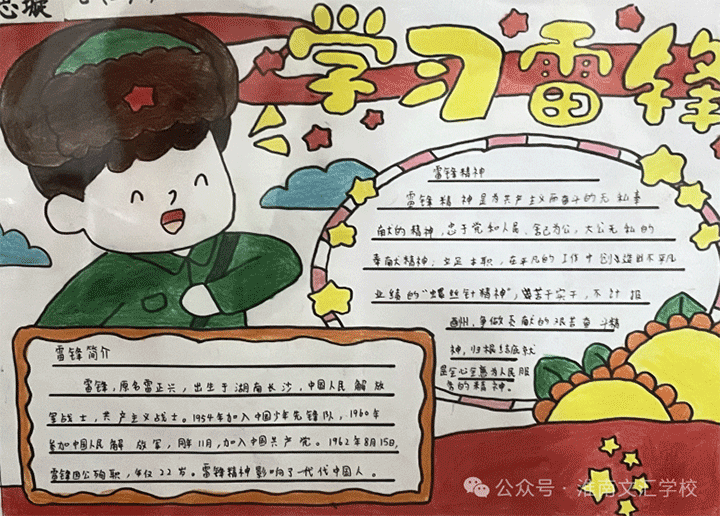 学习雷锋
雷锋精神
雷锋精神是为共产主义而奋斗的无私奉
献的精神，忠于党和人民、舍己为公，大公无私的
奉献精神；立足本职，在平凡的工作中创造出不平凡
业绩的“螺丝钉精神”，艰苦干实干，不计报
酬，争做贡献的艰苦奋斗精
神，归根结底就
是全心全意为人民服
务的精神。
雷锋简介
雷锋，原名雷正兴，出生于湖南长沙，中国人民解放
军战士，共产主义战士。1954年加入中国少年先锋队，1960年
参加中国人民解放军，同年11月，加入中国共产党。1962年8月15日，
雷锋因公殉职，年仅22岁。雷锋精神影响了一代代中国人。
公众号·淮南文汇学校